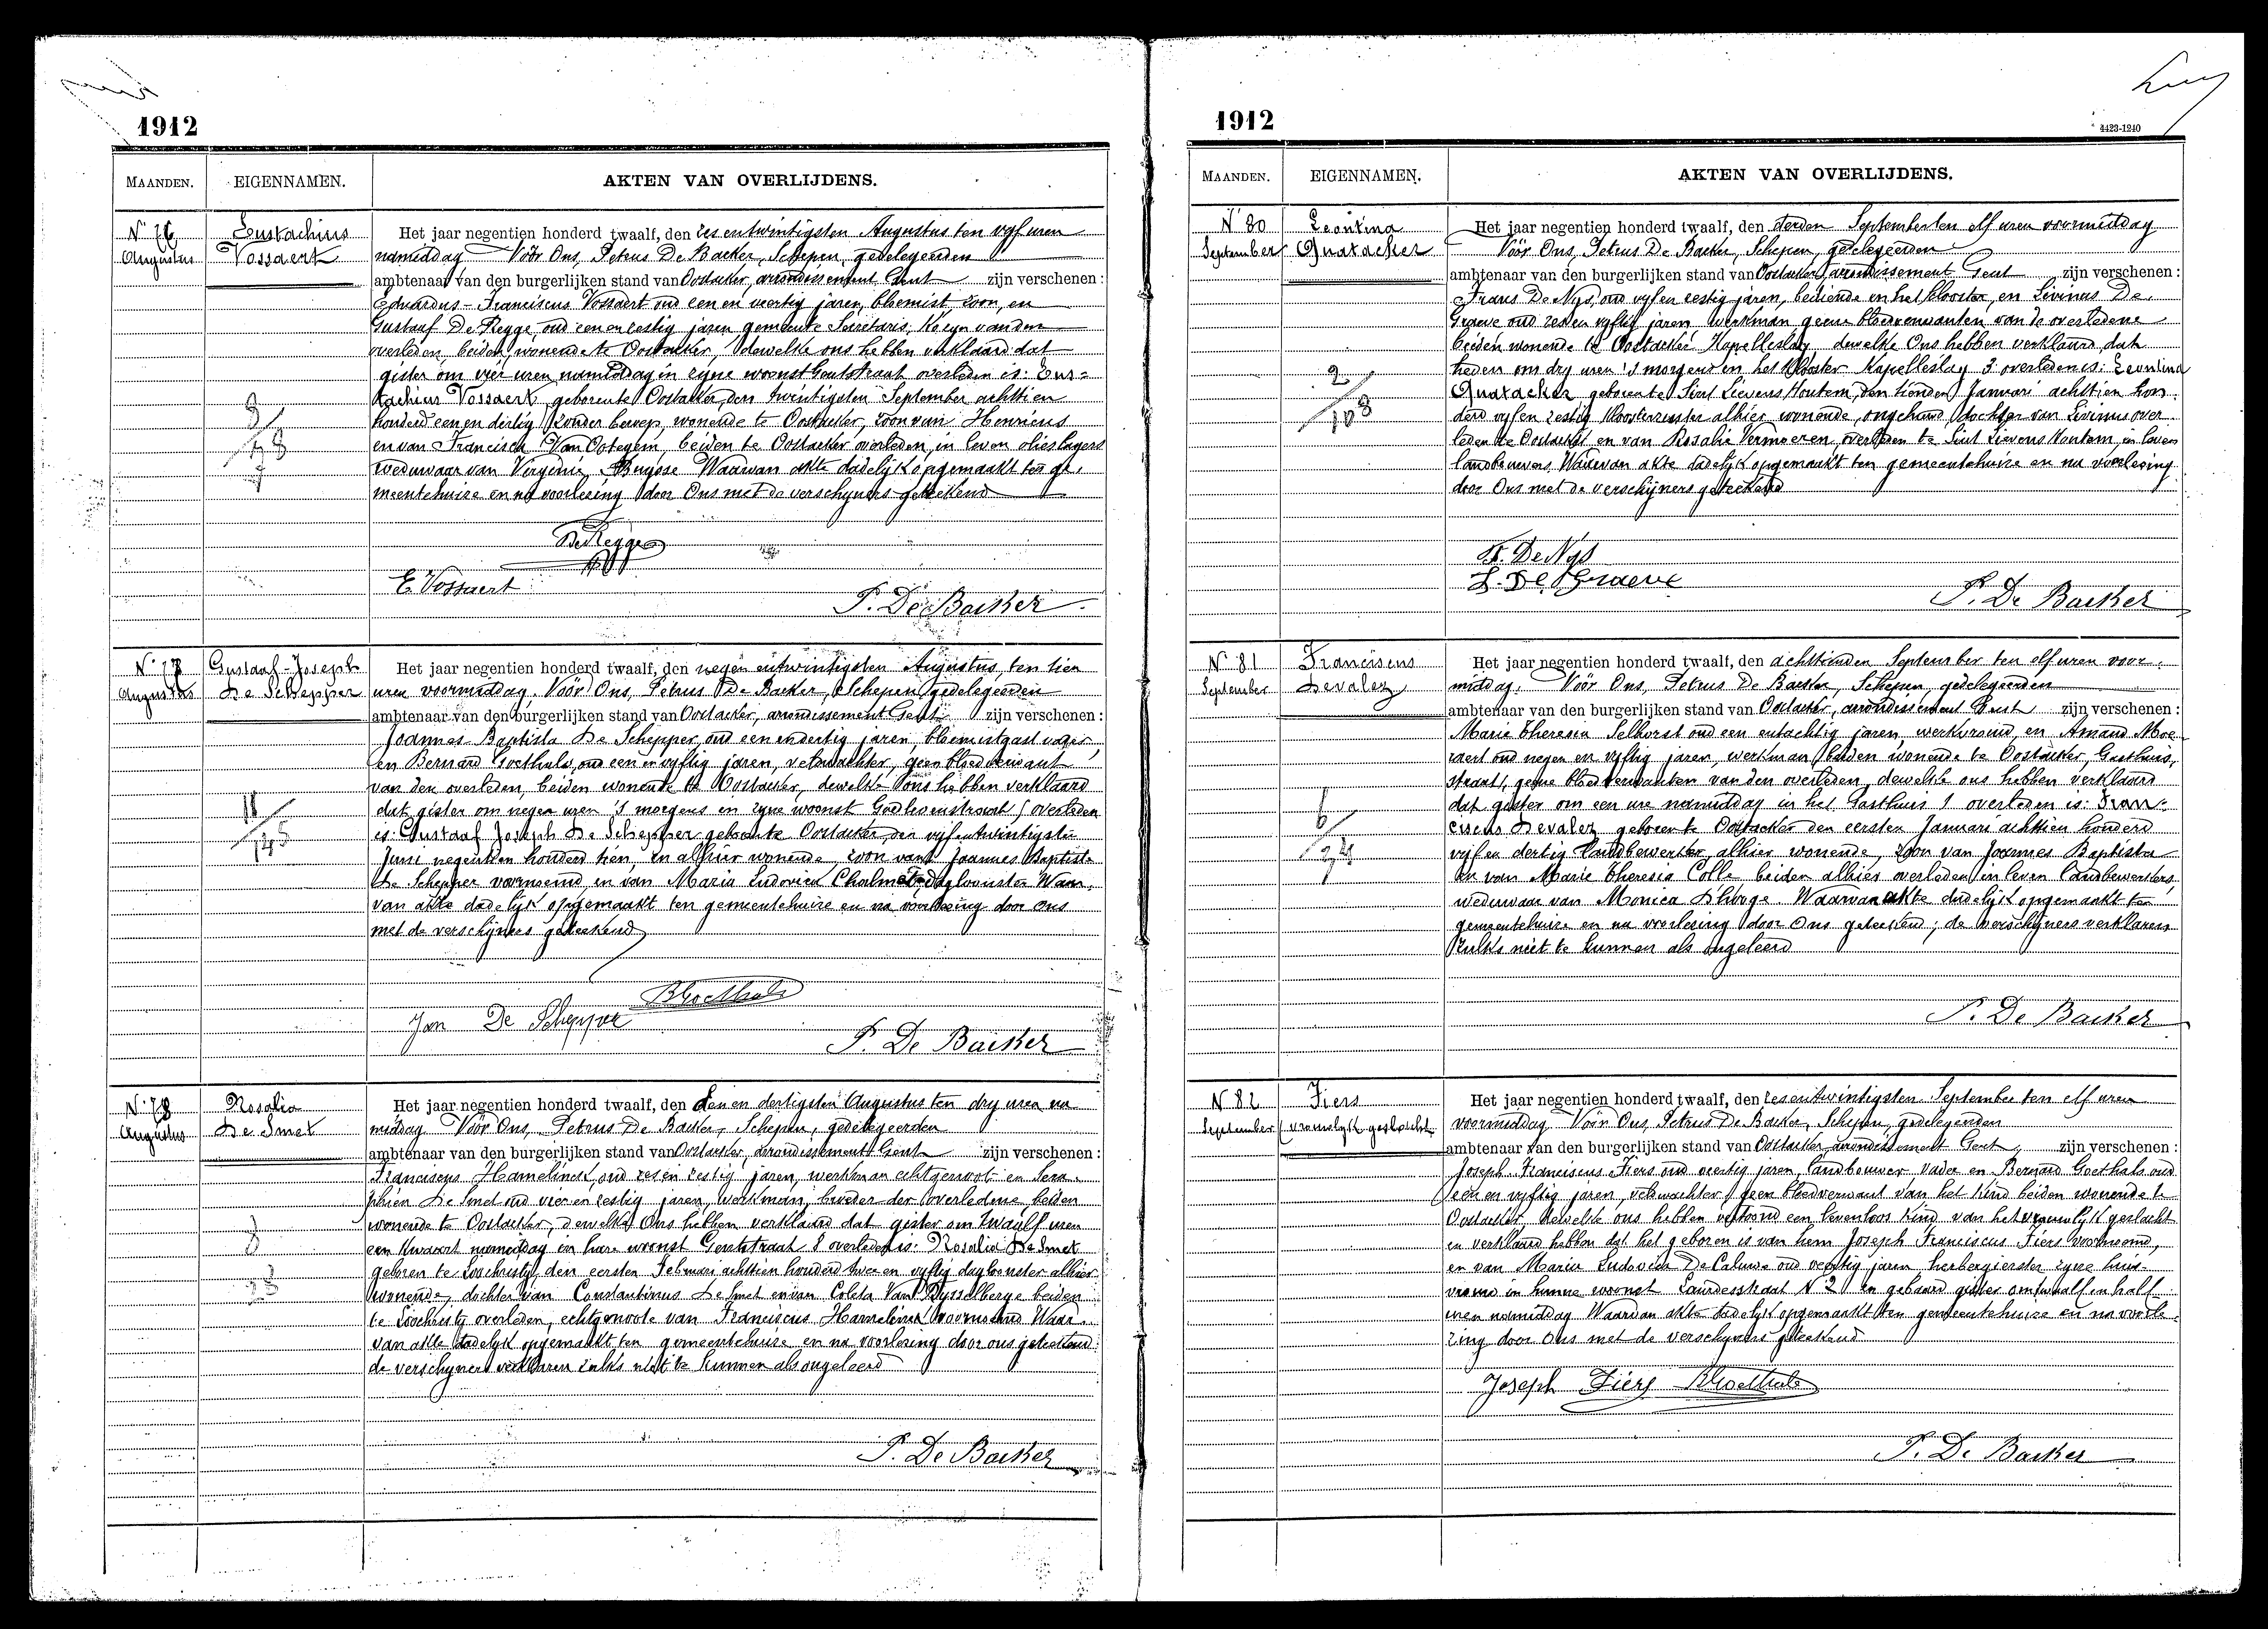 1912
MAANDEN. EIGENNAMEN. AKTEN VAN OVERLIJDENS.
N° 76
Augustus
Eustachius
Vossaert
Het jaar negentien honderd twaalf, den zesentwintigsten Augustus ten vyf uren
namiddag Vóór Ons, Petrus De Backer, Schepen, gedelegeerden
ambtenaar van den burgerlijken stand van Oostacker, arrondissement Gent zijn verschenen :
Eduardus-Franciscus Vossaert oud een en veertig jaren, bloemist zoon, en
Gustaaf De Regge, oud een en zestig jaren gemeente Secretaris, Kozyn van den
overleden, beiden wonende te Oostacker, dewelke ons hebben verklaard dat
gister om vier uren namiddag in zyne woonst Gentstraat overleden is: Eus-
tachius Vossaert, geboren te Oostacker, den twintigsten September achttien
honderd een en dertig, zonder beroep, wonende te Oostacker, zoon van Henricus
en van Francisca Van Ootegem, beiden te Oostacker overleden, in leven olieslagers
weduwaar van Virginie Buysse Waarvan akte dadelijk opgemaakt ten ge-
meentehuize en na voorlezing door Ons met de verschyners geteekend
De Regge
E. Vossaert
P. De Backer
N° 77
Augustus
Gustaaf-Joseph
De Schepper
Het jaar negentien honderd twaalf, den negen entwintigsten Augustus, ten tien
uren voormiddag. Vóór Ons, Petrus De Backer, Schepen, gedelegeerden
ambtenaar van den burgerlijken stand van Oostacker, arrondissement Gent zijn verschenen :
Joannes-Baptista De Schepper, oud een en dertig jaren, bloemistgast vader
en Bernard Goethals, oud een en vyftig jaren, veldwachter, geen bloedverwant
van den overleden, beiden wonende te Oostacker, dewelke ons hebben verklaard
dat gister om negen uren 's morgens in zyne woonst overleden
is: Gustaaf Joseph De Schepper geboren te Oostacker, den vijfentwintigsten
Juni negentien honderd tien, en alhier wonende, zoon van Joannes Baptista
De Schepper voornoemd, en van Maria Ludovica dagloonster Waar-
van akte dadelyk opgemaakt ten gemeentehuize en na voorlezing door ons
met de verschijners geteekend
BGoethals
Jan De Schepper
P. De Backer
N° 78
Augustus
Rosalia
De Smet
Het jaar negentien honderd twaalf, den Een en dertigsten Augustus ten dry uren na
middag Vóór Ons, Petrus De Backer, Schepen, gedelegeerden
ambtenaar van den burgerlijken stand van Oostacker, arrondissement Gent zijn verschenen :
Franciscus Hamelinck oud zes en zestig jaren, werkman echtgenoot en Sera-
phien De Smet oud vier en zestig jaren, werkman, broeder der overledene, beiden
wonende te Oostacker, dewelke Ons hebben verklaard dat gister om twaalf uren
een kwaart namiddag in hare woonst Gentstraat 8 overleden is: Rosalia De Smet
geboren te Loochristy, den eersten Februari achttien honderd twee en vyftig dagloonster alhier
wonende, dochter van Constantinus De Smet en van Coleta Van Rysselberge beiden
te Loochristy overleden, echtgenoote van Franciscus Hamelinck voornoemd Waar-
van akte dadelyk opgemaakt ten gemeentehuize en na voorlezing door ons geteekend
de verschyners verklaren zulks niet te kunnen als ongeleerd
P. De Backer
1912
4423-1240
MAANDEN. EIGENNAMEN. AKTEN VAN OVERLIJDENS.
N° 80
September
Leontina
Quatacker
Het jaar negentien honderd twaalf, den derden September ten elf uren voormiddag
Vóór Ons, Petrus De Backer, Schepen, gedelegeerden
ambtenaar van den burgerlijken stand van Oostacker, arrondissement Gent zijn verschenen :
Frans De Nys, oud vyf en zestig jaren, bediende in het klooster, en Livinus De
Graeve oud zes en vyftig jaren, werkman geene bloedverwanten van de overledene
beiden wonende te Oostacker Kapelleslag dewelke Ons hebben verklaard dat
heden om dry uren 's morgens in het Klooster Kapelleslag 3 overleden is: Leontina
Quatacker geboren te Sint Lievens Houtem, den tienden Januari achttien hon-
derd vyf en zestig kloosterzuster alhier wonende, ongehuwd dochter van Livinus over-
leden te Oostacker en van Rosalie Vermoeren, overleden te Sint Lievens Houtem, in leven
landbouwers Waarvan akte dadelyk opgemaakt ten gemeentehuize en na voorlezing
door Ons met de verschijners geteekend
F. De Nys
L. De Graeve
P. De Backer
N° 81
September
Franciscus
Devalez
Het jaar negentien honderd twaalf, den achttienden September ten elf uren voor-
middag. Vóór Ons, Petrus De Backer, Schepen, gedelegeerden
ambtenaar van den burgerlijken stand van Oostacker, arrondissement Gent zijn verschenen :
Marie Theresia Selhorst oud een entachtig jaren, werkvrouw, en Amand Moe
raert oud negen en vyftig jaren, werkman beiden wonende te Oostacker, Gasthuis,
straat, geene bloedverwanten van den overleden, dewelke ons hebben verklaard
dat gister om een ure namiddag in het Gasthuis 1 overleden is: Fran-
ciscus Devalez geboren te Oostacker den eersten Januari achttien honderd
vijf en dertig landbewerker, alhier wonende, zoon van Joannes Baptista
en van Marie Theresia Colle beiden alhier overleden in leven landbewerkers,
weduwaar van Monica D'hooge. Waarvan akte dadelyk opgemaakt ten
gemeentehuize en na voorlezing door Ons geteekend; de verschijners verklaren
zulks niet te kunnen als ongeleerd
P. De Backer
N° 82
September
Fiers
(vrouwelyk geslacht
Het jaar negentien honderd twaalf, den zesentwintigsten September ten elf uren
voormiddag Vóór Ons, Petrus De Backer, Schepen, gedelegeerden
ambtenaar van den burgerlijken stand van Oostacker, arrondissement Gent zijn verschenen :
Joseph-Franciscus Fiers oud veertig jaren, landbouwer vader en Bernard Goethals oud
een en vyftig jaren, veldwachter, geen bloedverwant van het kind beiden wonende te
Oostacker, dewelke ons hebben vertoond een levenloos kind van het vrouwelyk geslacht
en verklaard hebben dat het geboren is van hem Joseph Franciscus Fiers voornoemd,
en van Maria Ludovica De Caluwe oud veertig jaren herbergierster zyne huis-
vrouw in hunne woonst Lourdesstraat N° 2 en gebaard gister om twaalf en half
uren namiddag Waarvan akte dadelyk opgemaakt ten gemeentehuize en na voorle-
zing door Ons met de verschyners geteekend
Joseph Fiers BGoethals
P. De Backer